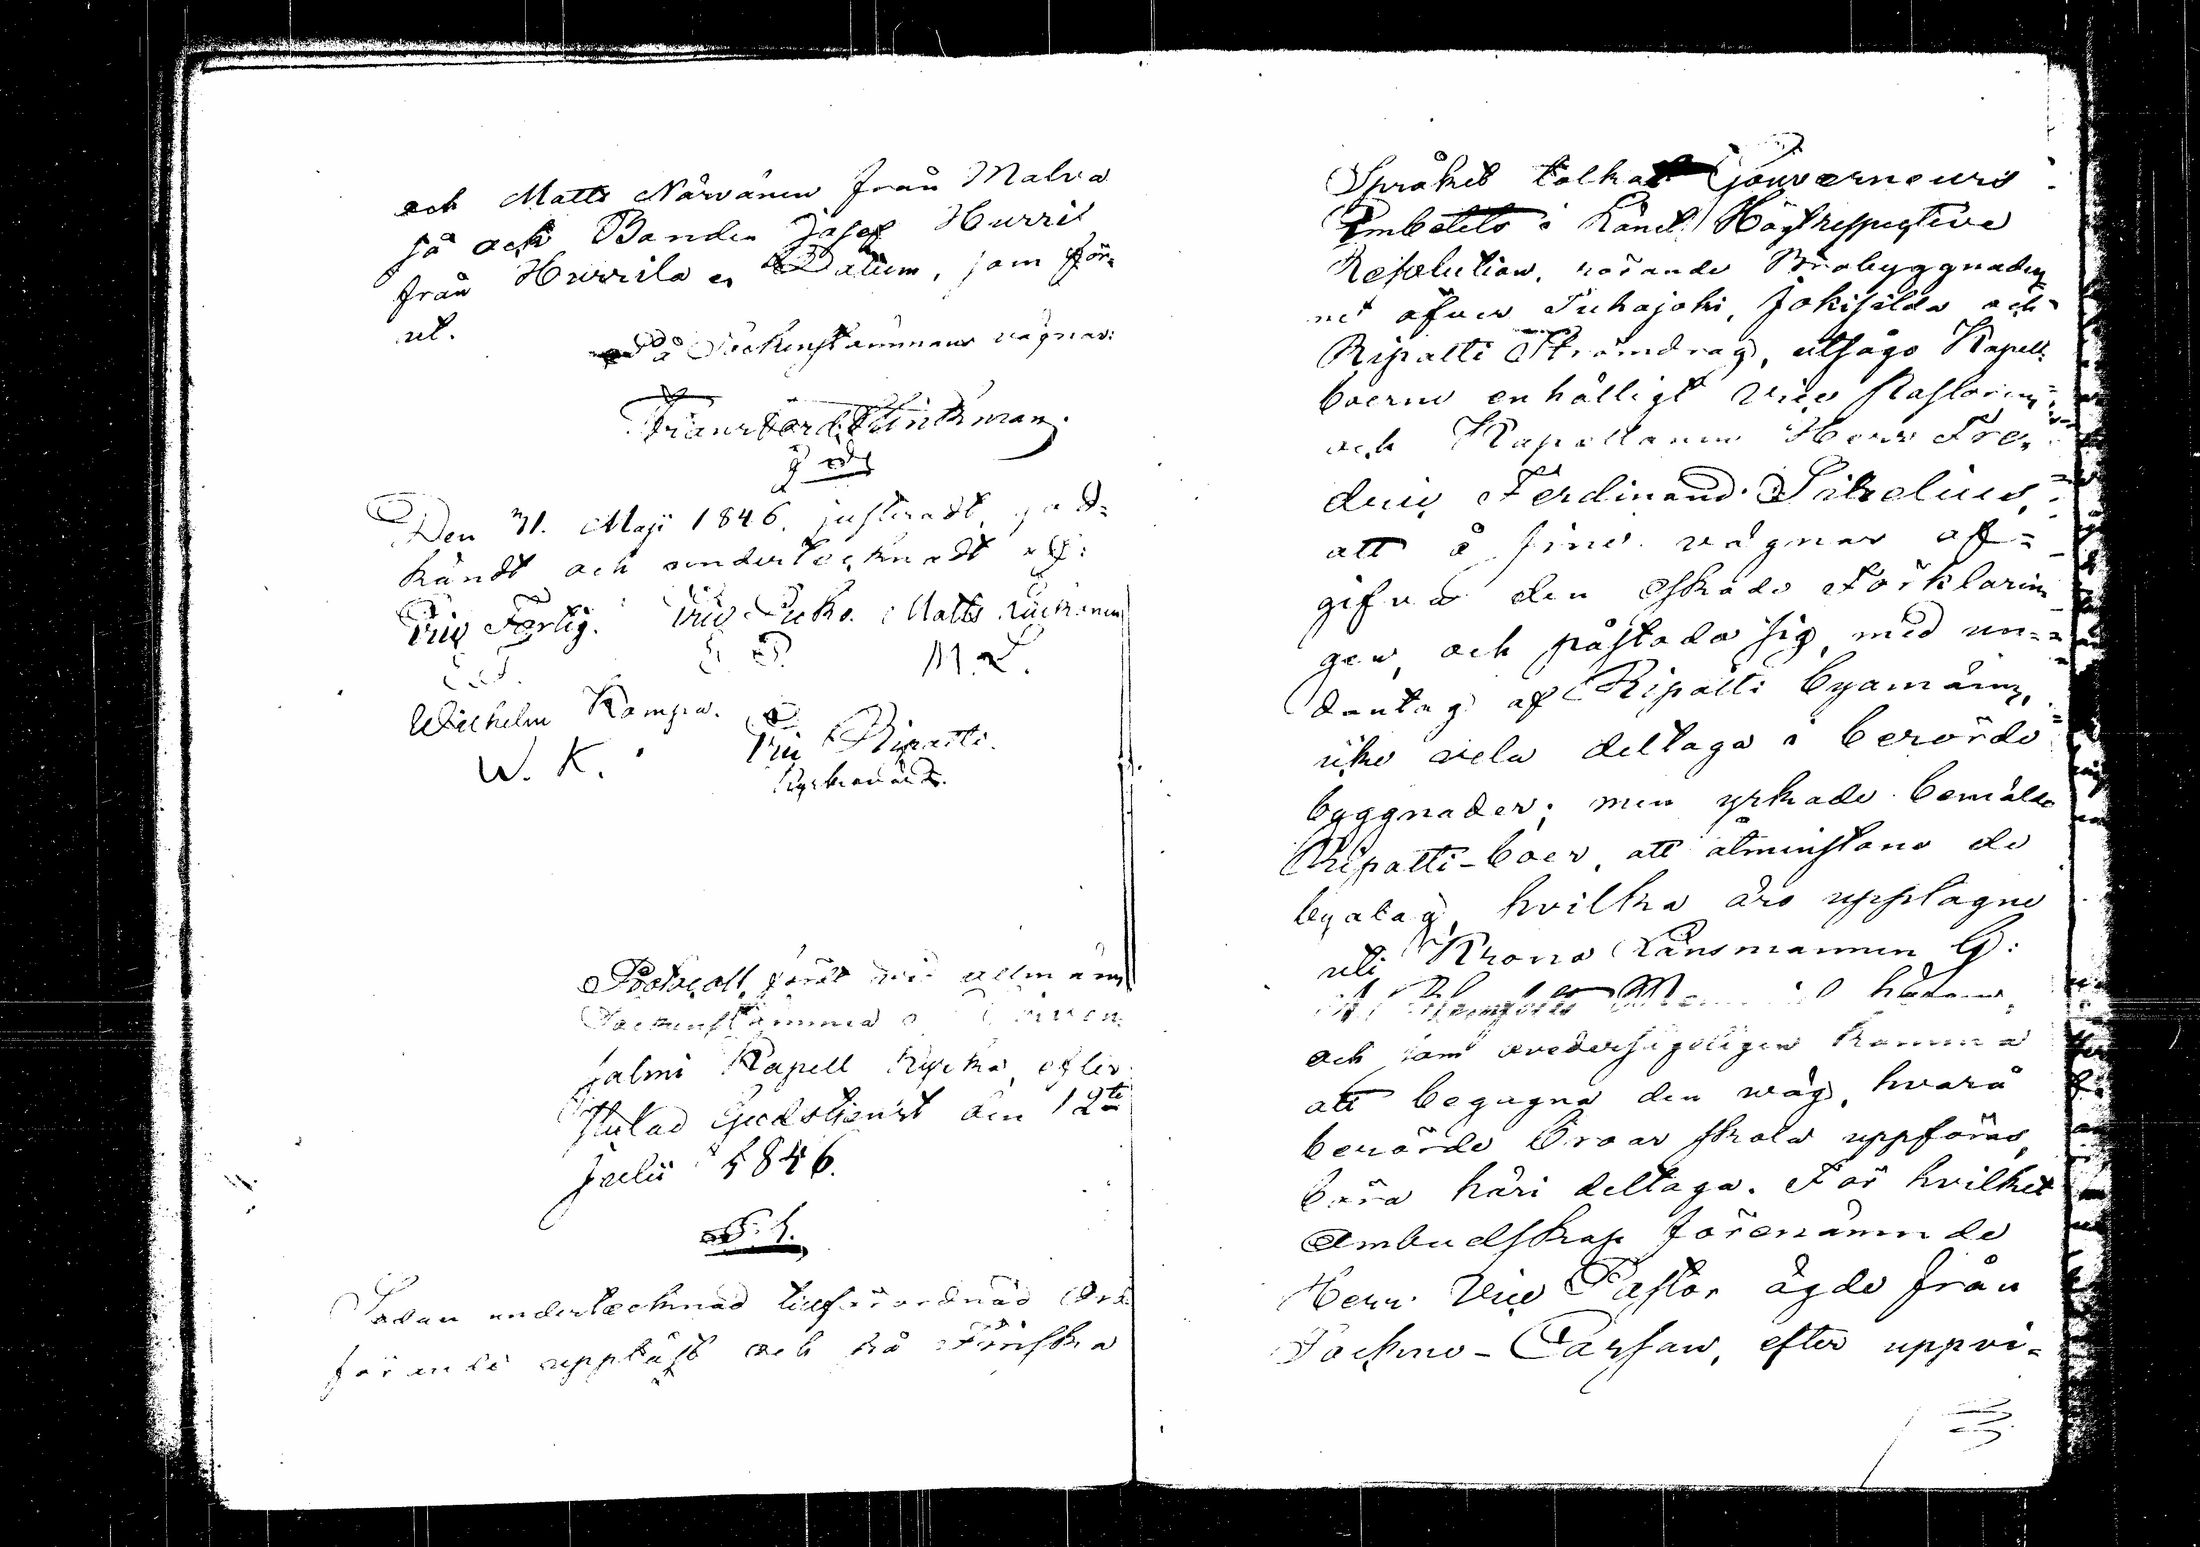 och Matts Närvänen från Malva
så och Bonden Josef Hurri
från Hurrila Datum, som för-
ut.
På Sockenstämmans vägnar:
Den 31. Maji 1846. justeradt, god-
kändt och undertecknadt af:
Eric Fortig. Eric Matts
E. P. M. L.
Wilhelm Kampa. Eric Ripatti.
W. K. Kyrkovärd.
Protocoll, fördt vid allmän
Sockenstämma i
salmi Kapell Kyrka, efter
slutad Gudstienst den 12te
Julii 1846.
§. 1.
Sedan undertecknad tillförordnad Ord-
förande uppläst och på Finska
Språket tolkat Gouverneurs
Embetets i Länet Högtrespective
Resolution, rörande Brobyggnader-
ne öfver Tuhajoki, Jokisilda och
Ripatti Strömdrag, utsågo Kapell-
boerne enhälligt Vice Pastorn
och Kapellanen Herr Fre-
dric Ferdinand
att å sine vägnar af-
gifva den äskade Förklarin-
gen, och påstodo sig, med un-
dantag af Ripatti byamän,
icke vela deltaga i berörde
byggnader; men yrkade bemälde
Ripatti-boer, att åtminstone de
byalag, hvilka äro upptagne
uti Krono Länsmannen G:
och som ovedersägeligen komma
att begagna den väg, hvarå
berörde broar skola uppföras,
böra häri deltaga. För hvilket
Ombudskap förenämnde
Herr Vice Pastor ägde från
Sockne-Cassan, efter uppvi-